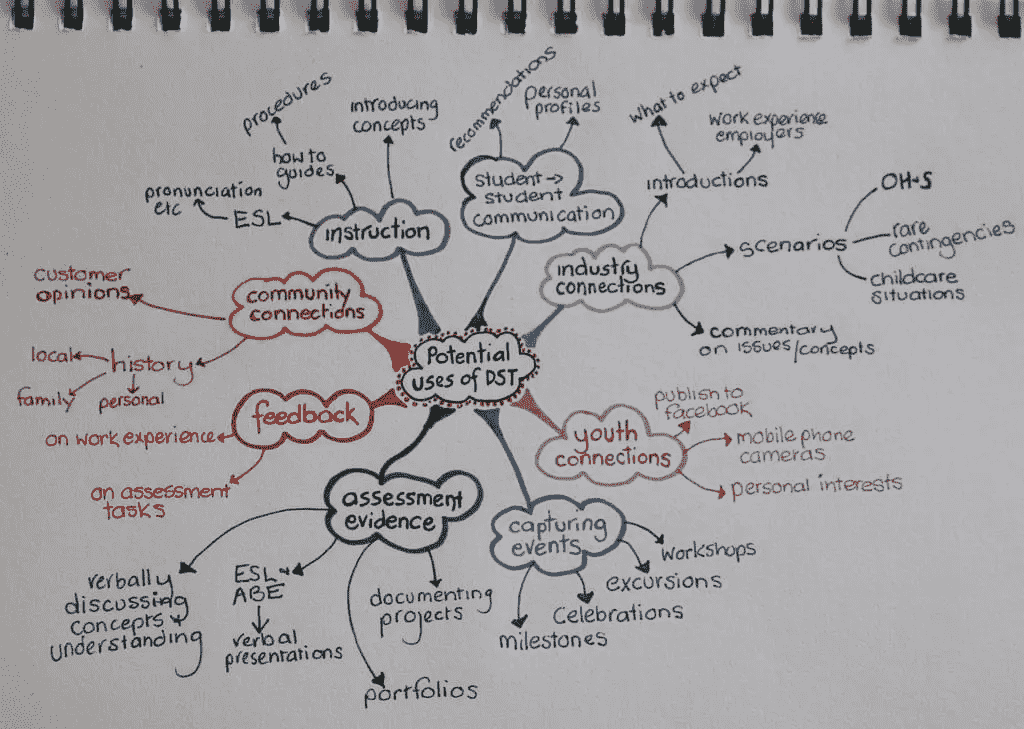 Potential
uses of DST
instruction
procedures
how to
guides
introducing
concepts
ESL
pronunciation
etc
student →
student
communication
recommendations
personal
profiles
industry
connections
introductions
what to expect
work experience
employers
scenarios
OH+S
rare
contingencies
childcare
situations
commentary
on issues/concepts
youth
connections
publish to
facebook
mobile phone
cameras
personal interests
capturing
events
workshops
excursions
Celebrations
milestones
assessment
evidence
documenting
projects
portfolios
ESL +
ABE
verbal
presentations
verbally
discussing
concepts +
understanding
feedback
on work experience
on assessment
tasks
community
connections
customer
opinions
history
local
family
personal